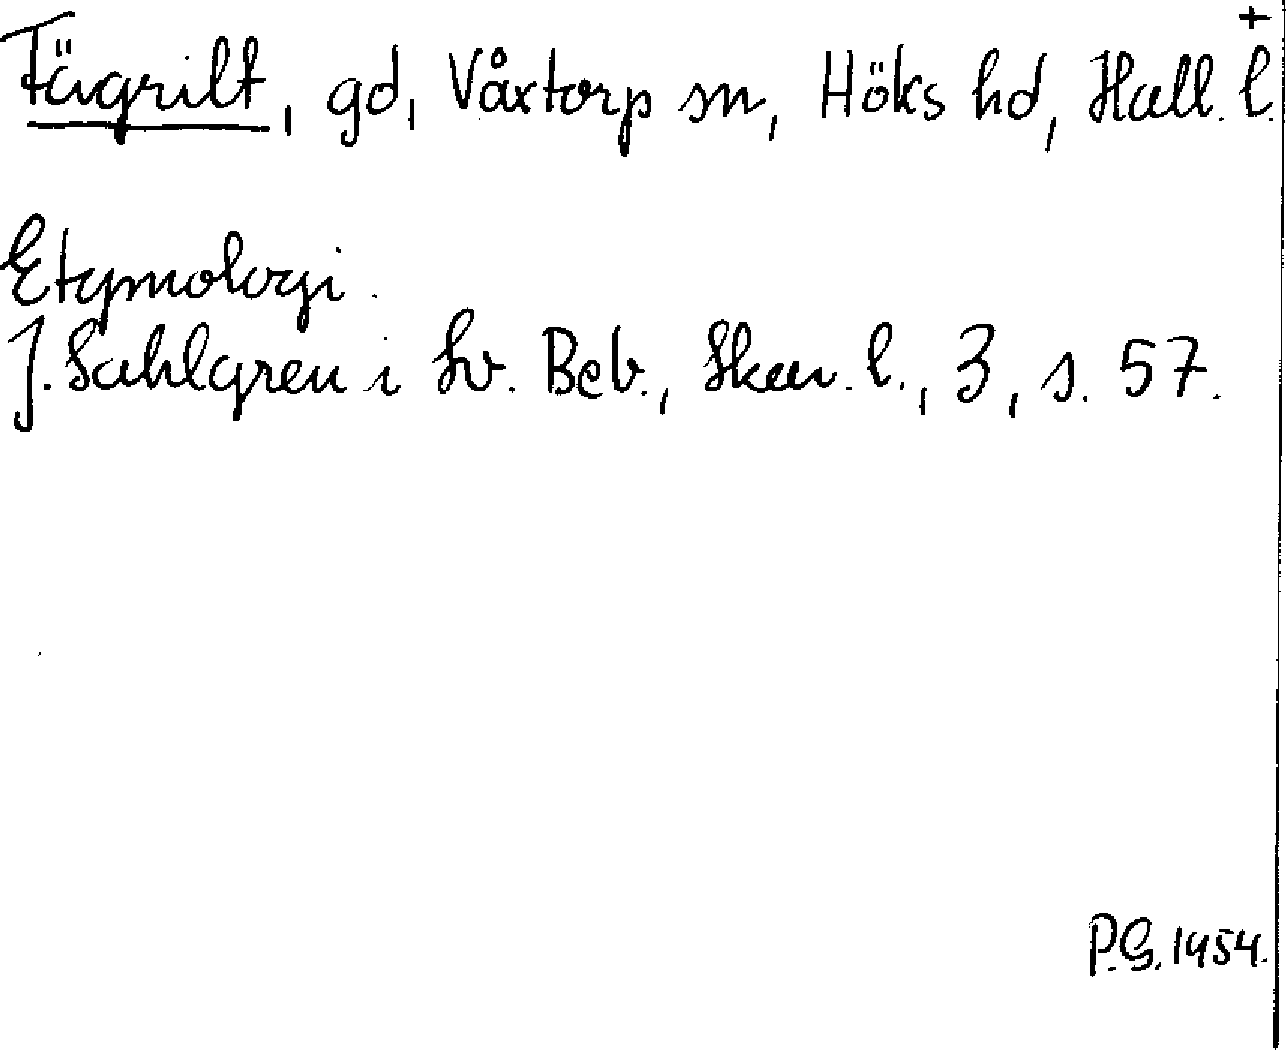 +
Fägrilt, gd, Våxtorp sn, Höks hd, Hall. l.
Etymologi.
J. Sahlgren i Sv. Beb., Skar. l., 3, s. 57.
P.G. 1954.